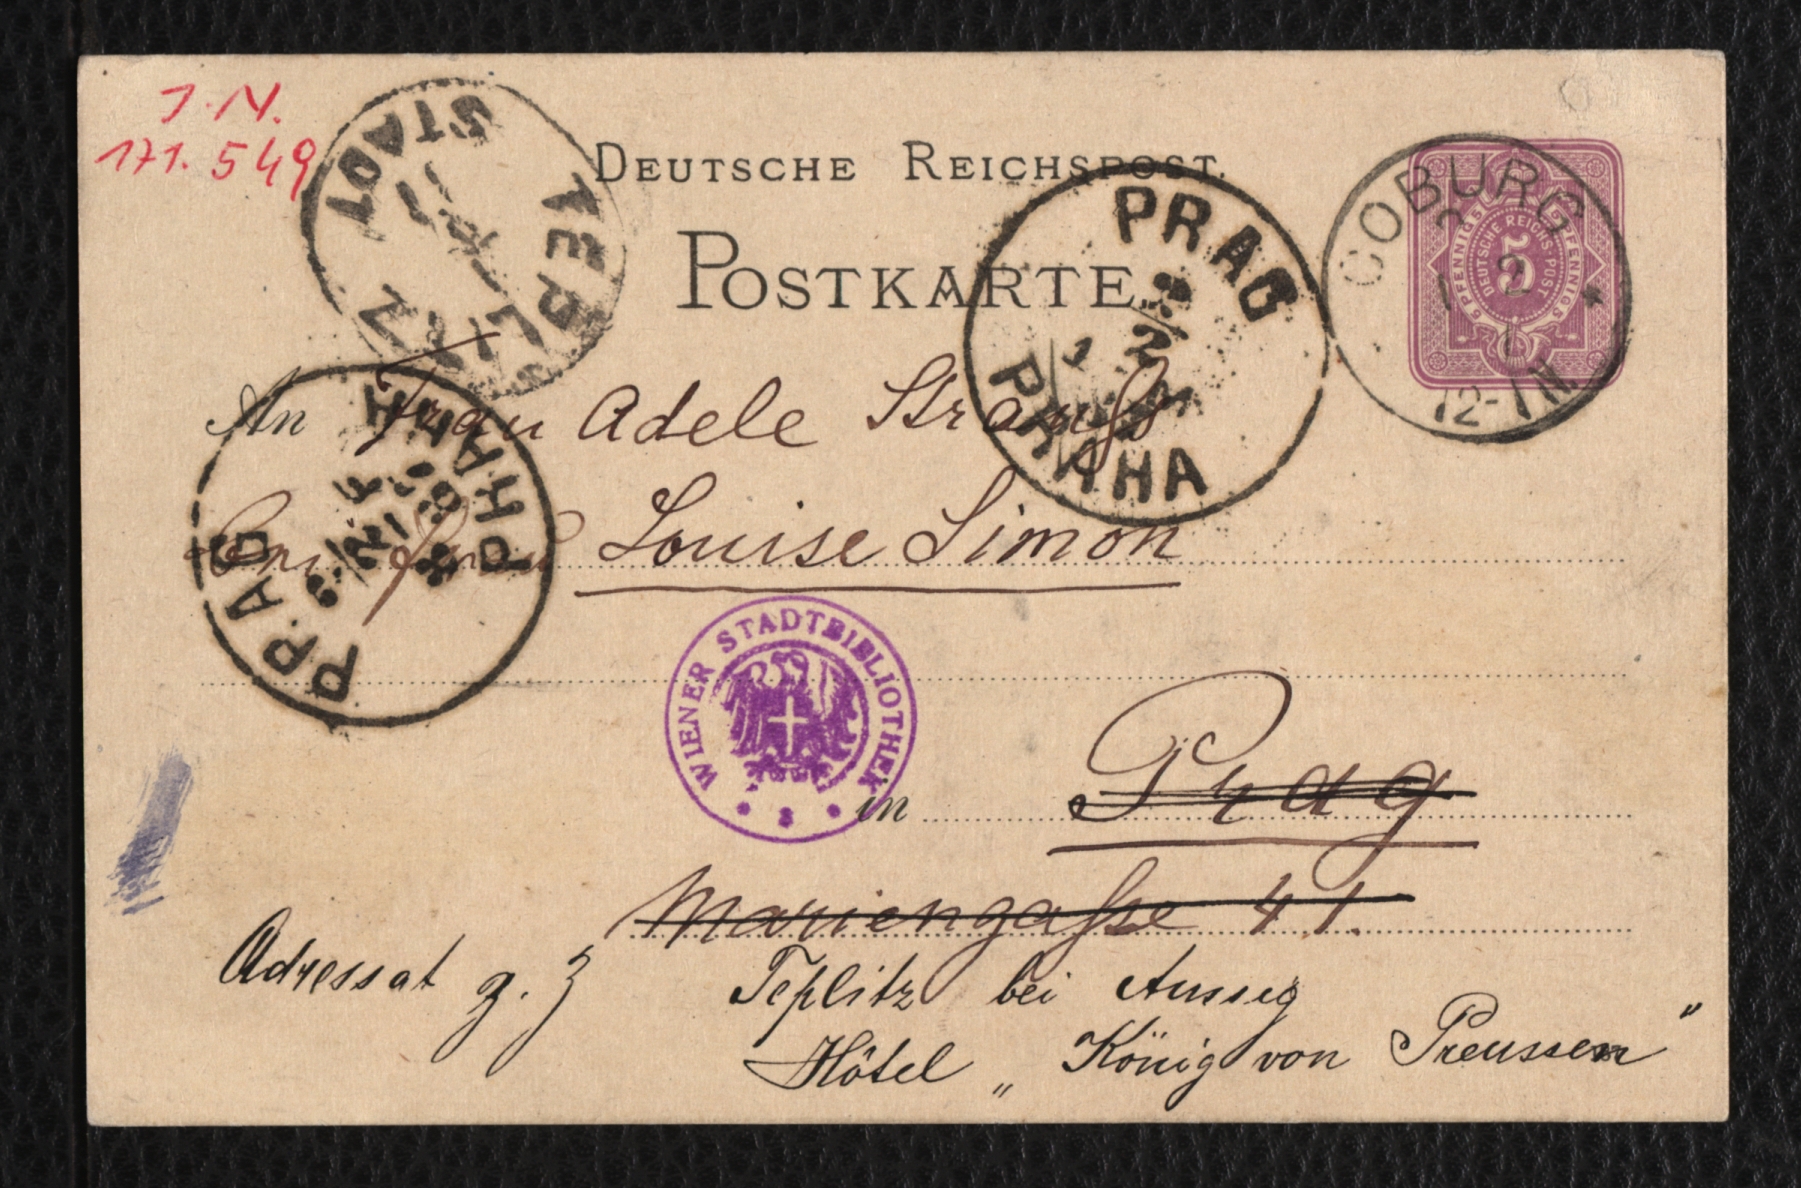 J.N.
171.549
DEUTSCHE REICHSPOST.
POSTKARTE.
TEPLITZ
STADT
PRAG
PRAHA
COBURG
1 2
12-1 N.
5
DEUTSCHE REICHS-POST
5 PFENNIG 5
5 PFENNIG 5
An Frau Adele Strauss
bei Frau Louise Simon
PRAG
PRAHA
WIENER STADTBIBLIOTHEK
in Prag
Mariengasse 41.
Adressat z. Z Teplitz bei Aussig
Hôtel „König von Preussen"